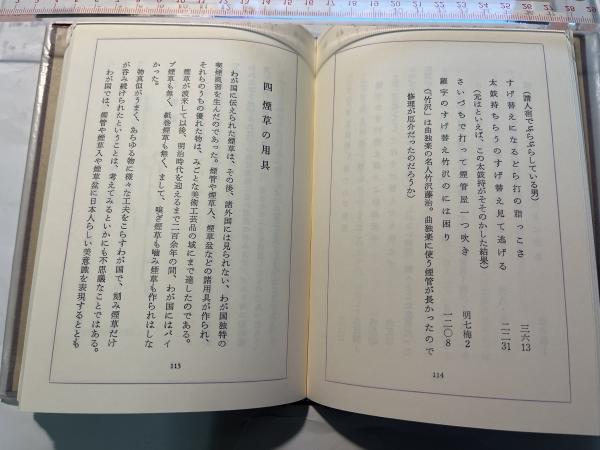 （諸人宿でぶらぶらしている男）
すげ替えになるどら打の脂っこさ 三六13
太鼓持ちらうのすげ替え見て逃げる 二二31
（元はといえば、この太鼓持がそそのかした結果）
さいづちで打って煙管屋一つ吹き 明七梅2
羅宇のすげ替え竹沢のには困り 一二〇8
（「竹沢」は曲独楽の名人竹沢藤治。曲独楽に使う煙管が長かったので
修理が厄介だったのだろうか）
114
四 煙草の用具
わが国に伝えられた煙草は、その後、諸外国には見られない、わが国独特の
喫煙風習を生んだのであった。煙管や煙草入、煙草盆などの諸用具が作られ、
それらのうちの優れた物は、みごとな美術工芸品の域にまで達したのである。
煙草が渡来して以後、明治時代を迎えるまで二百余年の間、わが国にはパイ
プ煙草も無く、紙巻煙草も無く、まして、嗅ぎ煙草も嚙み煙草も作られはしな
かった。
物真似がうまく、あらゆる物に様々な工夫をこらすわが国で、刻み煙草だけ
が呑み続けられたということは、考えてみるといかにも不思議なことではある。
わが国では、煙管や煙草入や煙草盆に日本人らしい美意識を表現するととも
115